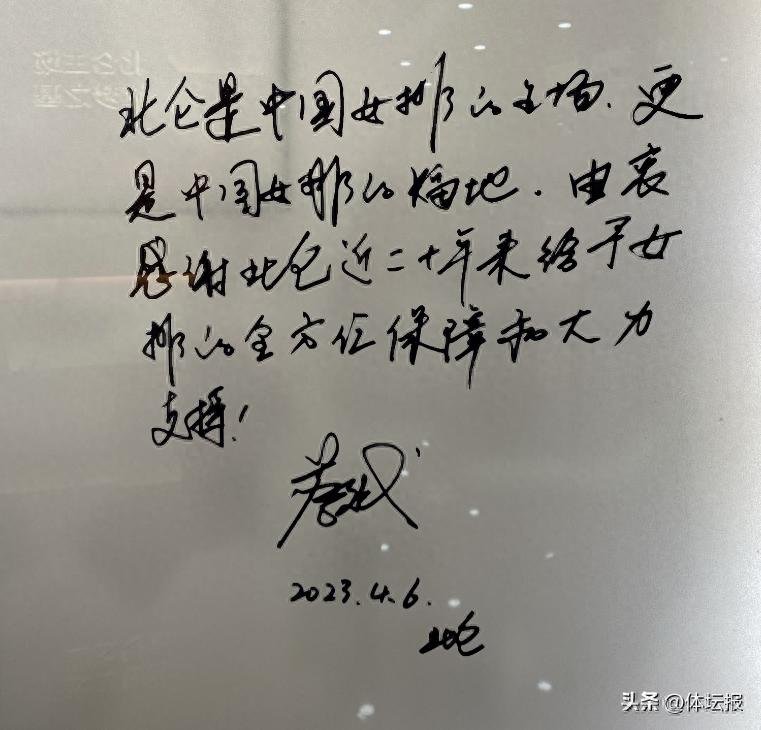 北仑是中国女排的主场、更
是中国女排的福地。由衷
感谢北仑近二十年来给予女
排的全方位保障和大力
支持！
蔡斌
2023.4.6.
北仑
头条 @体坛报